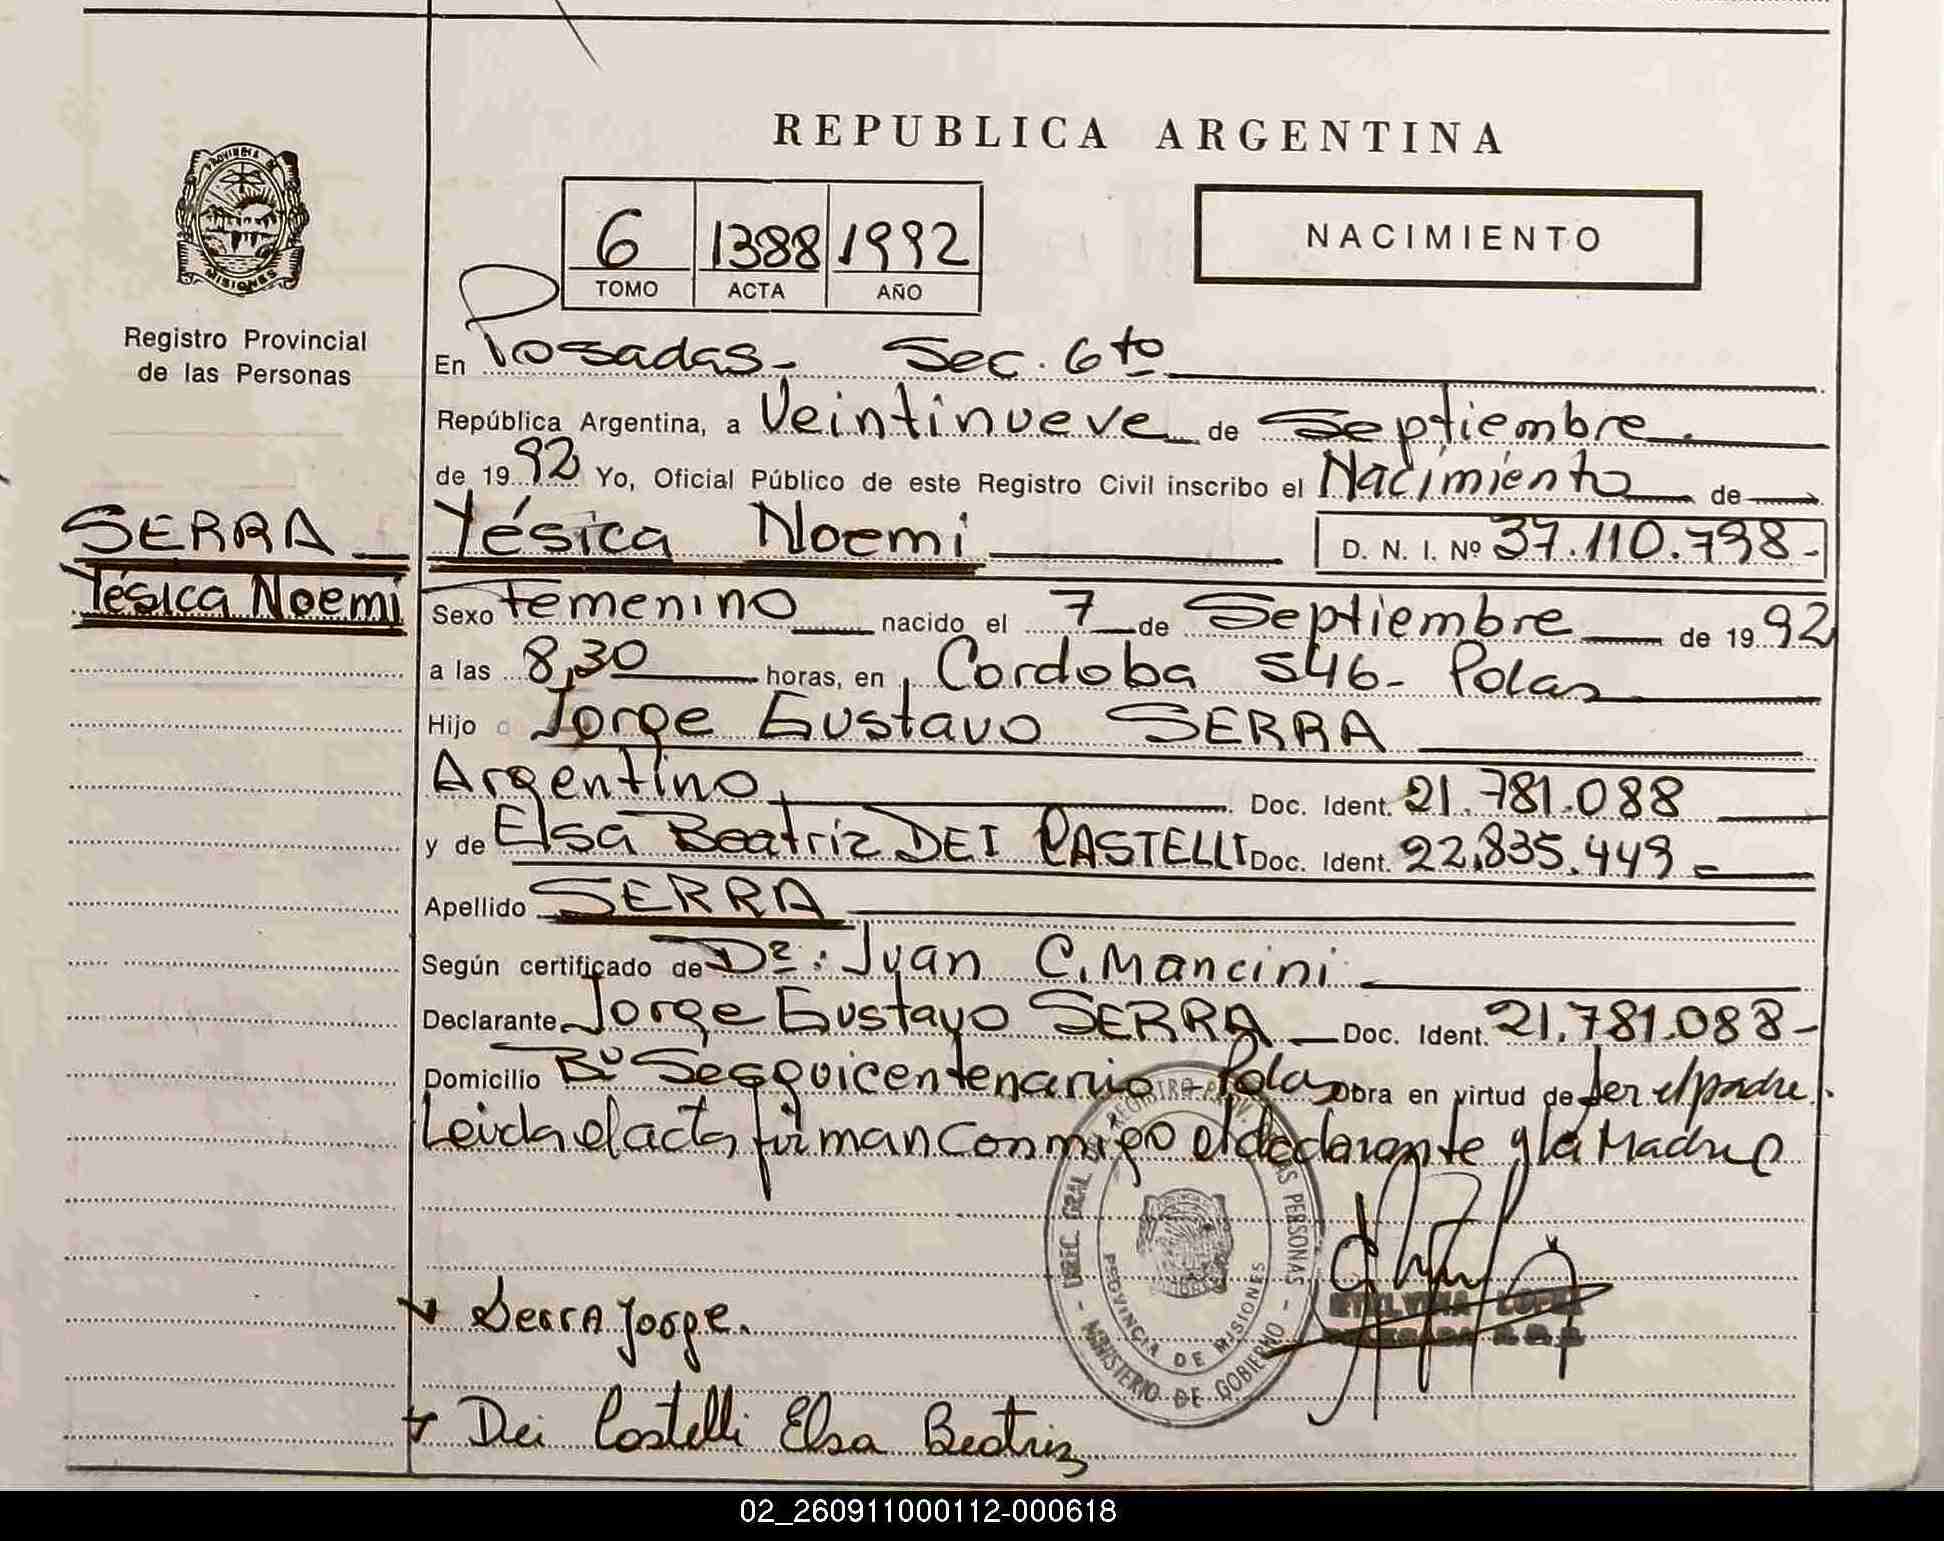 REPUBLICA ARGENTINA
PROVINCIA DE
MISIONES
Registro Provincial
de las Personas
6 1388 1992
TOMO ACTA AÑO
NACIMIENTO
En Posadas - Sec. 6to
República Argentina, a Veintinueve de Septiembre.
de 1992 Yo, Oficial Público de este Registro Civil inscribo el Nacimiento de
SERRA
Yésica Noemi
Yésica Noemi D. N. I. Nº 37.110.798-
Sexo Femenino nacido el 7 de Septiembre de 1992
a las 8,30 horas, en Cordoba 546- Pdas
Hijo Jorge Gustavo SERRA
Argentino Doc. Ident. 21.781.088
y de Elsa Beatriz DEI CASTELLI Doc. Ident. 22.835.449-
Apellido SERRA
Según certificado de Dr: Juan C. Mancini
Declarante Jorge Gustavo SERRA Doc. Ident. 21.781.088-
Domicilio Bº Sesquicentenario - Pdas obra en virtud de ser el padre.
Leida el acta, firman conmigo el declarante y la Madre
MINISTERIO DE GOBIERNO
PROVINCIA DE MISIONES
Serra Jorge.
Dei Castelli Elsa Beatriz
02_260911000112-000618